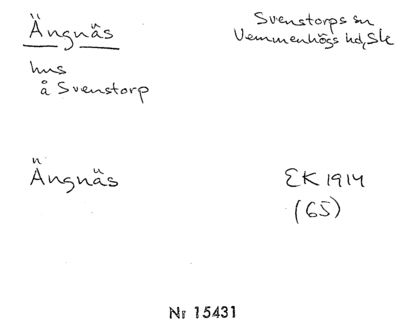 Ängnäs
Svenstorps sn
Vemmenhögs hd, Sk
hus
å Svenstorp
Ängnäs
EK 1914
(65)
Nr 15431